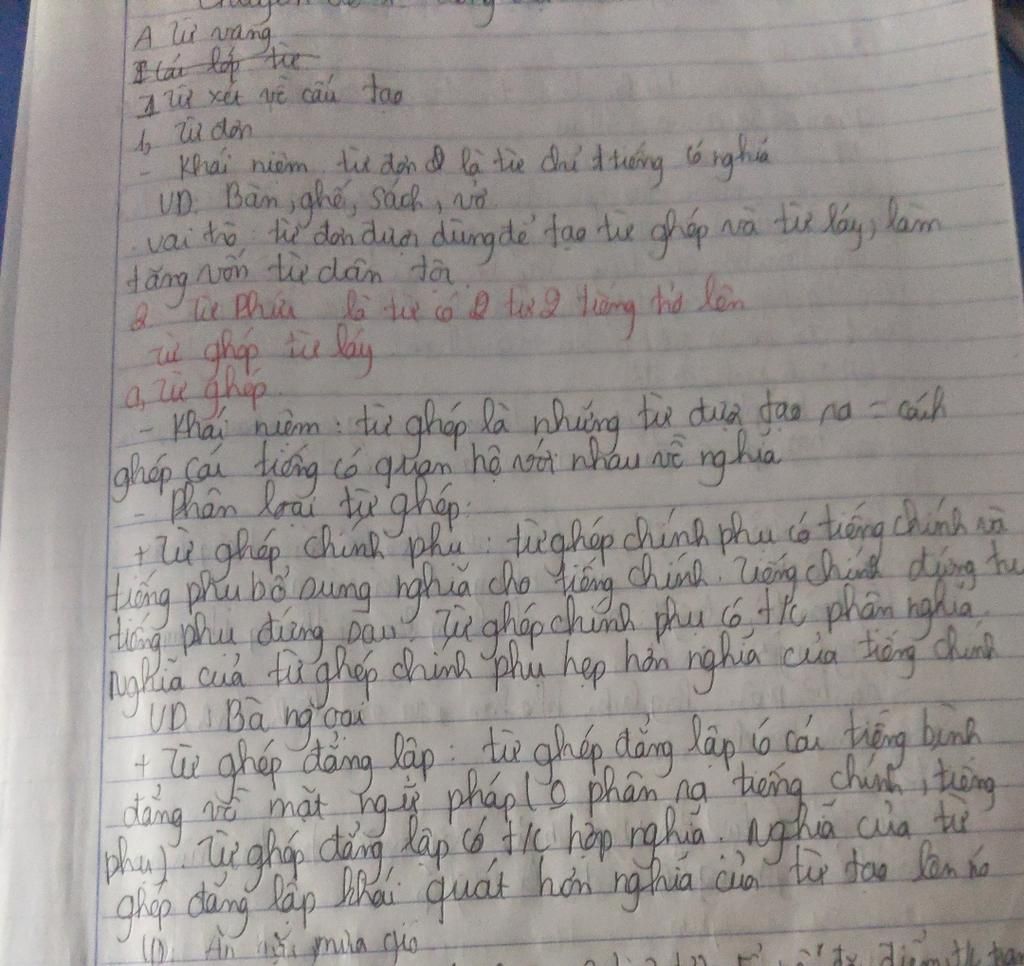 A Từ vựng
I Các lớp từ
I Từ xét về cấu tạo
1, Từ đơn
- Khái niệm từ đơn là từ chỉ 1 tiếng có nghĩa
VD: Bàn, ghế, sách, vở
. vai trò từ đơn được dùng để tạo từ ghép và từ láy, làm
tăng vốn từ dân tộc
2 Từ Phức là từ có từ 2 tiếng trở lên
Từ ghép từ láy
a, Từ ghép
- Khái niệm: từ ghép là những từ được tạo ra = cách
ghép các tiếng có quan hệ với nhau về nghĩa
- Phân loại từ ghép:
+ Từ ghép chính phụ: từ ghép chính phụ có tiếng chính và
tiếng phụ bổ sung nghĩa cho tiếng chính. Tiếng chính đứng
tiếng phụ đứng sau. Từ ghép chính phụ có t/c phân nghĩa.
Nghĩa của từ ghép chính phụ hẹp hơn nghĩa của tiếng chính
VD: Bà ngoại
+ Từ ghép đẳng lập: từ ghép đẳng lập có các tiếng bình
đẳng về mặt ngữ pháp (0 phân ra tiếng chính, tiếng
phụ). Từ ghép đẳng lập có t/c hợp nghĩa. Nghĩa của từ
ghép đẳng lập khái quát hơn nghĩa của từ tạo lên nó
VD: Ăn mưa gió